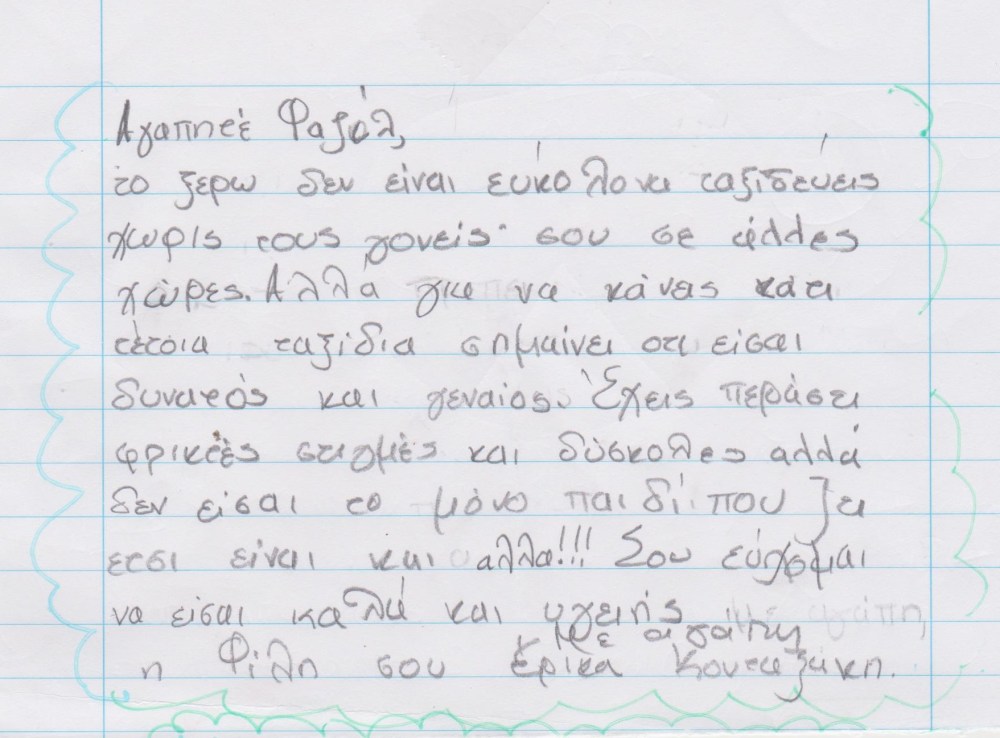 Αγαπητέ Φαζόλ,
το ξερω δεν είναι εύκολο να ταξιδεύεις
χωρίς τους γονείς σου σε άλλες
χώρες. Αλλά για να κάνεις κάτι
τέτοια ταξίδια σημαίνει οτι είσαι
δυνατός και γεναίος. Έχεις περάσει
φρικτές στιγμές και δύσκολες αλλά
δεν είσαι το μόνο παιδί που ζει
ετσι είναι και αλλα!!! Σου εύχομαι
να είσαι καλά και υγειής
Με αγάπη
η Φίλη σου Ερικα Κουταζάκη.